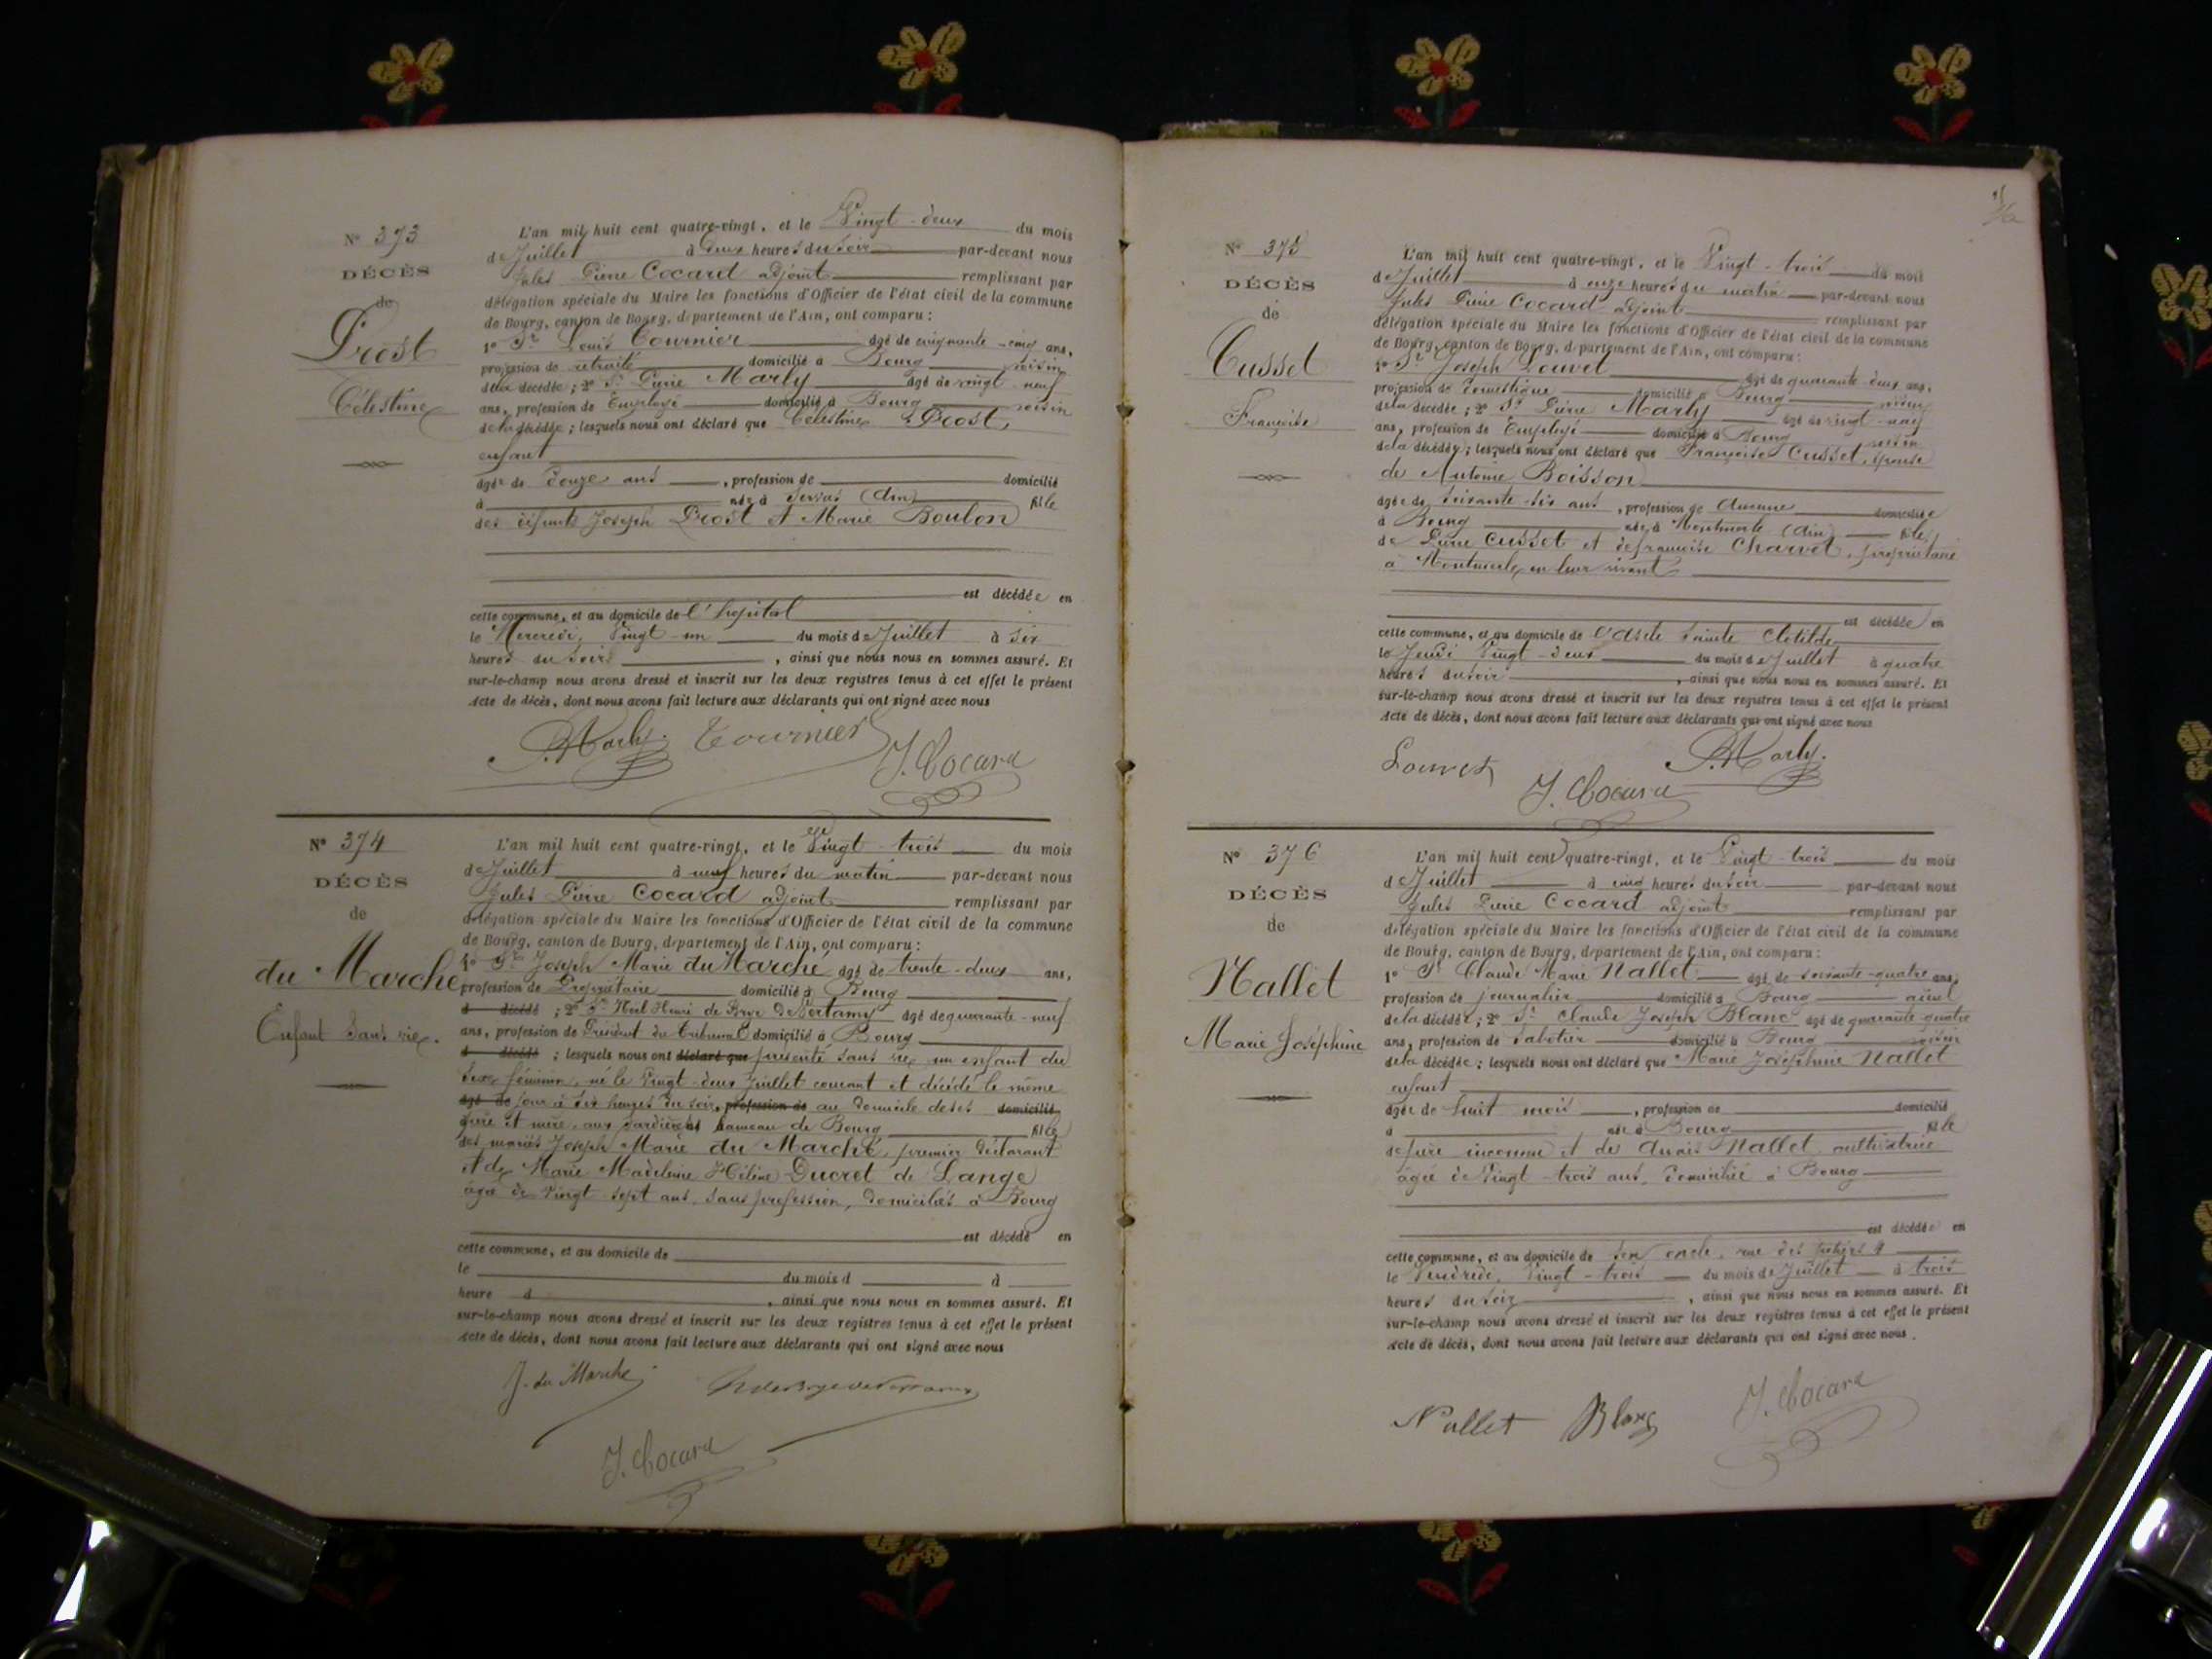 N° 373
DÉCÈS
de
Prost
Célestine
L'an mil huit cent quatre-vingt, et le Vingt-deux du mois
de Juillet à deux heures du soir par-devant nous
Jules Pierre Cocard adjoint remplissant par
délégation spéciale du Maire les fonctions d'Officier de l'état civil de la commune
de Bourg, canton de Bourg, département de l'Ain, ont comparu :
1° Sr Louis Tournier âgé de cinquante-cinq ans,
profession de retraité domicilié à Bourg voisin
de la décédée ; 2° Sr Pierre Marly âgé de vingt-neuf
ans, profession de Employé domicilié à Bourg voisin
de la décédée ; lesquels nous ont déclaré que Célestine Prost,
enfant
âgée de douze ans, profession de domicilié
à née à Servas (Ain) fille
des défunts Joseph Prost et Marie Boulon
est décédée en
cette commune, et au domicile de l'hôpital
le Mercredi, Vingt-un du mois de Juillet à six
heures du soir, ainsi que nous nous en sommes assuré. Et
sur-le-champ nous avons dressé et inscrit sur les deux registres tenus à cet effet le présent
acte de décès, dont nous avons fait lecture aux déclarants qui ont signé avec nous
P. Marly. Tournier J. Cocard
N° 374
DÉCÈS
de
du Marché
Enfant sans vie.
L'an mil huit cent quatre-vingt, et le Vingt-trois du mois
de Juillet à neuf heures du matin par-devant nous
Jules Pierre Cocard adjoint remplissant par
délégation spéciale du Maire les fonctions d'Officier de l'état civil de la commune
de Bourg, canton de Bourg, département de l'Ain, ont comparu :
1° Sr Joseph Marie du Marché âgé de trente-deux ans,
profession de Propriétaire domicilié à Bourg
d décédé ; 2° Sr Noël Henri de âgé de quarante-neuf
ans, profession de Président du tribunal domicilié à Bourg
d décédé ; lesquels nous ont déclaré que présenté sans vie un enfant du
sexe féminin, né le Vingt-deux Juillet courant et décédé le même
âgé de jour à six heures du soir, profession de au domicile de ses domicilié
père et mère, aux hameau de Bourg fille
des mariés Joseph Marie du Marché, premier déclarant
et de Marie Madeleine Hélène Ducret de Lange
âgée de vingt-sept ans, sans profession, domiciliés à Bourg
est décédé en
cette commune, et au domicile de
le du mois d à
heure d, ainsi que nous nous en sommes assuré. Et
sur-le-champ nous avons dressé et inscrit sur les deux registres tenus à cet effet le présent
acte de décès, dont nous avons fait lecture aux déclarants qui ont signé avec nous
J. du Marché
J. Cocard
N° 375
DÉCÈS
de
Cusset
Françoise
L'an mil huit cent quatre-vingt, et le Vingt-trois du mois
de Juillet à onze heures du matin par-devant nous
Jules Pierre Cocard adjoint remplissant par
délégation spéciale du Maire les fonctions d'Officier de l'état civil de la commune
de Bourg, canton de Bourg, département de l'Ain, ont comparu :
1° Sr Joseph Louvet âgé de quarante-deux ans,
profession de domestique domicilié à Bourg voisin
de la décédée ; 2° Sr Pierre Marly âgé de vingt-neuf
ans, profession de Employé domicilié à Bourg voisin
de la décédée ; lesquels nous ont déclaré que Françoise Cusset, épouse
de Antoine Boisson
âgée de soixante-six ans, profession de Aucune domiciliée
à Bourg née à Montmerle (Ain) fille
de Pierre Cusset et de Françoise Charvet, propriétaire
à Montmerle en leur vivant
est décédée en
cette commune, et au domicile de l'asile Sainte Clotilde
le Jeudi Vingt-deux du mois de Juillet à quatre
heures du soir, ainsi que nous nous en sommes assuré. Et
sur-le-champ nous avons dressé et inscrit sur les deux registres tenus à cet effet le présent
acte de décès, dont nous avons fait lecture aux déclarants qui ont signé avec nous
Louvet P. Marly.
J. Cocard
N° 376
DÉCÈS
de
Nallet
Marie Joséphine
L'an mil huit cent quatre-vingt, et le Vingt-trois du mois
de Juillet à cinq heures du soir par-devant nous
Jules Pierre Cocard adjoint remplissant par
délégation spéciale du Maire les fonctions d'Officier de l'état civil de la commune
de Bourg, canton de Bourg, département de l'Ain, ont comparu :
1° Sr Claude Marie Nallet âgé de soixante-quatre ans,
profession de journalier domicilié à Bourg aïeul
de la décédée ; 2° Sr Claude Joseph Blanc âgé de quarante-quatre
ans, profession de Sabotier domicilié à Bourg voisin
de la décédée ; lesquels nous ont déclaré que Marie Joséphine Nallet
enfant
âgée de huit mois, profession de domicilié
à née à Bourg fille
de père inconnu et de Anaïs Nallet, cultivatrice
âgée de Vingt-trois ans, domiciliée à Bourg
est décédée en
cette commune, et au domicile de son oncle, rue des
le Vendredi, Vingt-trois du mois de Juillet à trois
heures du soir, ainsi que nous nous en sommes assuré. Et
sur-le-champ nous avons dressé et inscrit sur les deux registres tenus à cet effet le présent
acte de décès, dont nous avons fait lecture aux déclarants qui ont signé avec nous.
Nallet Blanc J. Cocard